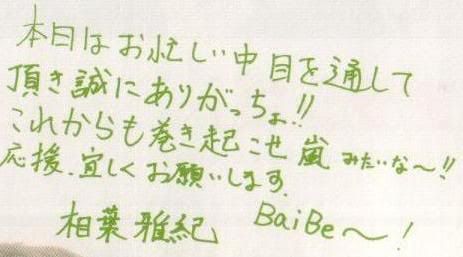 本日はお忙しい中目を通して
頂き誠にありがっちょ!!
これからも巻き起こせ嵐みたいな〜!!
応援、宜しくお願いします。
相葉雅紀 BaiBe〜!